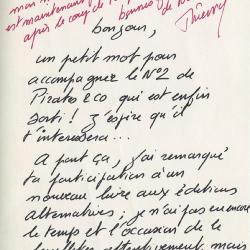 est maintenant
après le coup de
Thierry
bonjour,
un petit mot pour
accompagner le N°2 de
Pirato & co qui est enfin
sorti ! J'espère qu'il
t'intéressera...
A part ça, j'ai remarqué
ta participation à un
nouveau livre aux éditions
alternatives ; je n'ai pas encore
le temps et l'occasion de le
attentivement mais